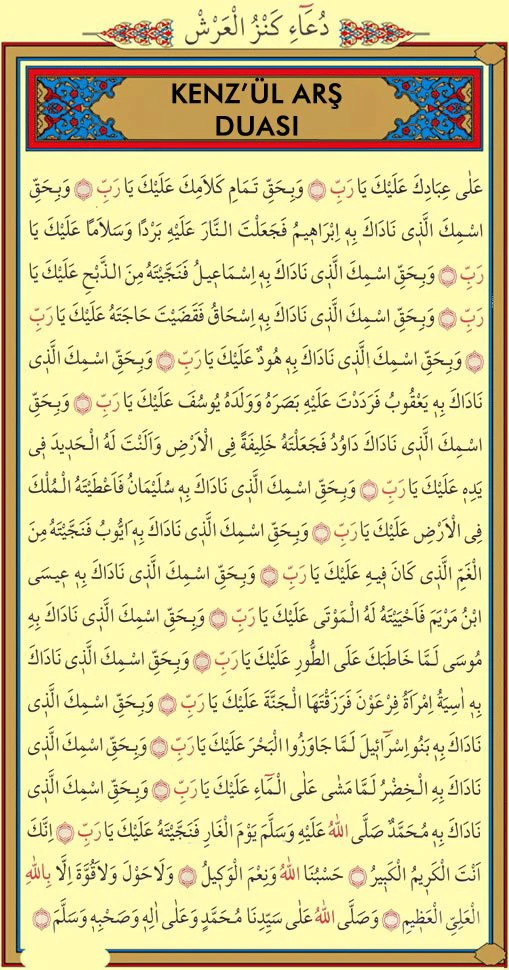 دُعَاءِ كَنْزُ الْعَرْشْ
KENZ’ÜL ARŞ
DUASI
عَلٰى عِبَادِكَ عَلَيْكَ يَا رَبِّ ۝ وَبِحَقِّ تَمَامِ كَلَامِكَ عَلَيْكَ يَا رَبِّ ۝ وَبِحَقِّ
اسْمِكَ الَّذِى نَادَاكَ بِهِ اِبْرَاهِيمُ فَجَعَلْتَ النَّارَ عَلَيْهِ بَرْدًا وَسَلَامًا عَلَيْكَ يَا
رَبِّ ۝ وَبِحَقِّ اسْمِكَ الَّذِى نَادَاكَ بِهِ اِسْمَاعِيلُ فَنَجَّيْتَهُ مِنَ الذَّبْحِ عَلَيْكَ يَا
رَبِّ ۝ وَبِحَقِّ اسْمِكَ الَّذِى نَادَاكَ بِهِ اِسْحَاقُ فَقَضَيْتَ حَاجَتَهُ عَلَيْكَ يَا رَبِّ
۝ وَبِحَقِّ اسْمِكَ الَّذِى نَادَاكَ بِهِ هُودٌ عَلَيْكَ يَا رَبِّ ۝ وَبِحَقِّ اسْمِكَ الَّذِى
نَادَاكَ بِهِ يَعْقُوبُ فَرَدَدْتَ عَلَيْهِ بَصَرَهُ وَوَلَدَهُ يُوسُفَ عَلَيْكَ يَا رَبِّ ۝ وَبِحَقِّ
اسْمِكَ الَّذِى نَادَاكَ دَاوُدُ فَجَعَلْتَهُ خَلِيفَةً فِى الْاَرْضِ وَاَلَنْتَ لَهُ الْحَدِيدَ فِى
يَدِهِ عَلَيْكَ يَا رَبِّ ۝ وَبِحَقِّ اسْمِكَ الَّذِى نَادَاكَ بِهِ سُلَيْمَانُ فَاَعْطَيْتَهُ الْمُلْكَ
فِى الْاَرْضِ عَلَيْكَ يَا رَبِّ ۝ وَبِحَقِّ اسْمِكَ الَّذِى نَادَاكَ بِهِ اَيُّوبُ فَنَجَّيْتَهُ مِنَ
الْغَمِّ الَّذِى كَانَ فِيهِ عَلَيْكَ يَا رَبِّ ۝ وَبِحَقِّ اسْمِكَ الَّذِى نَادَاكَ بِهِ عِيسَى
ابْنُ مَرْيَمَ فَاَحْيَيْتَهُ لَهُ الْمَوْتٰى عَلَيْكَ يَا رَبِّ ۝ وَبِحَقِّ اسْمِكَ الَّذِى نَادَاكَ بِهِ
مُوسٰى لَمَّا خَاطَبَكَ عَلَى الطُّورِ عَلَيْكَ يَا رَبِّ ۝ وَبِحَقِّ اسْمِكَ الَّذِى نَادَاكَ
بِهِ اٰسِيَةُ امْرَاَةُ فِرْعَوْنَ فَرَزَقْتَهَا الْجَنَّةَ عَلَيْكَ يَا رَبِّ ۝ وَبِحَقِّ اسْمِكَ الَّذِى
نَادَاكَ بِهِ بَنُو اِسْرَائِيلَ لَمَّا جَاوَزُوا الْبَحْرَ عَلَيْكَ يَا رَبِّ ۝ وَبِحَقِّ اسْمِكَ الَّذِى
نَادَاكَ بِهِ الْخِضْرُ لَمَّا مَشٰى عَلَى الْمَاءِ عَلَيْكَ يَا رَبِّ ۝ وَبِحَقِّ اسْمِكَ الَّذِى
نَادَاكَ بِهِ مُحَمَّدٌ صَلَّى اللهُ عَلَيْهِ وَسَلَّمَ يَوْمَ الْغَارِ فَنَجَّيْتَهُ عَلَيْكَ يَا رَبِّ ۝ اِنَّكَ
اَنْتَ الْكَرِيمُ الْكَبِيرُ ۝ حَسْبُنَا اللهُ وَنِعْمَ الْوَكِيلُ ۝ وَلَا حَوْلَ وَلَا قُوَّةَ اِلَّا بِاللهِ
الْعَلِىِّ الْعَظِيمِ ۝ وَصَلَّى اللهُ عَلٰى سَيِّدِنَا مُحَمَّدٍ وَعَلٰى اٰلِهِ وَصَحْبِهِ وَسَلَّمَ ۝